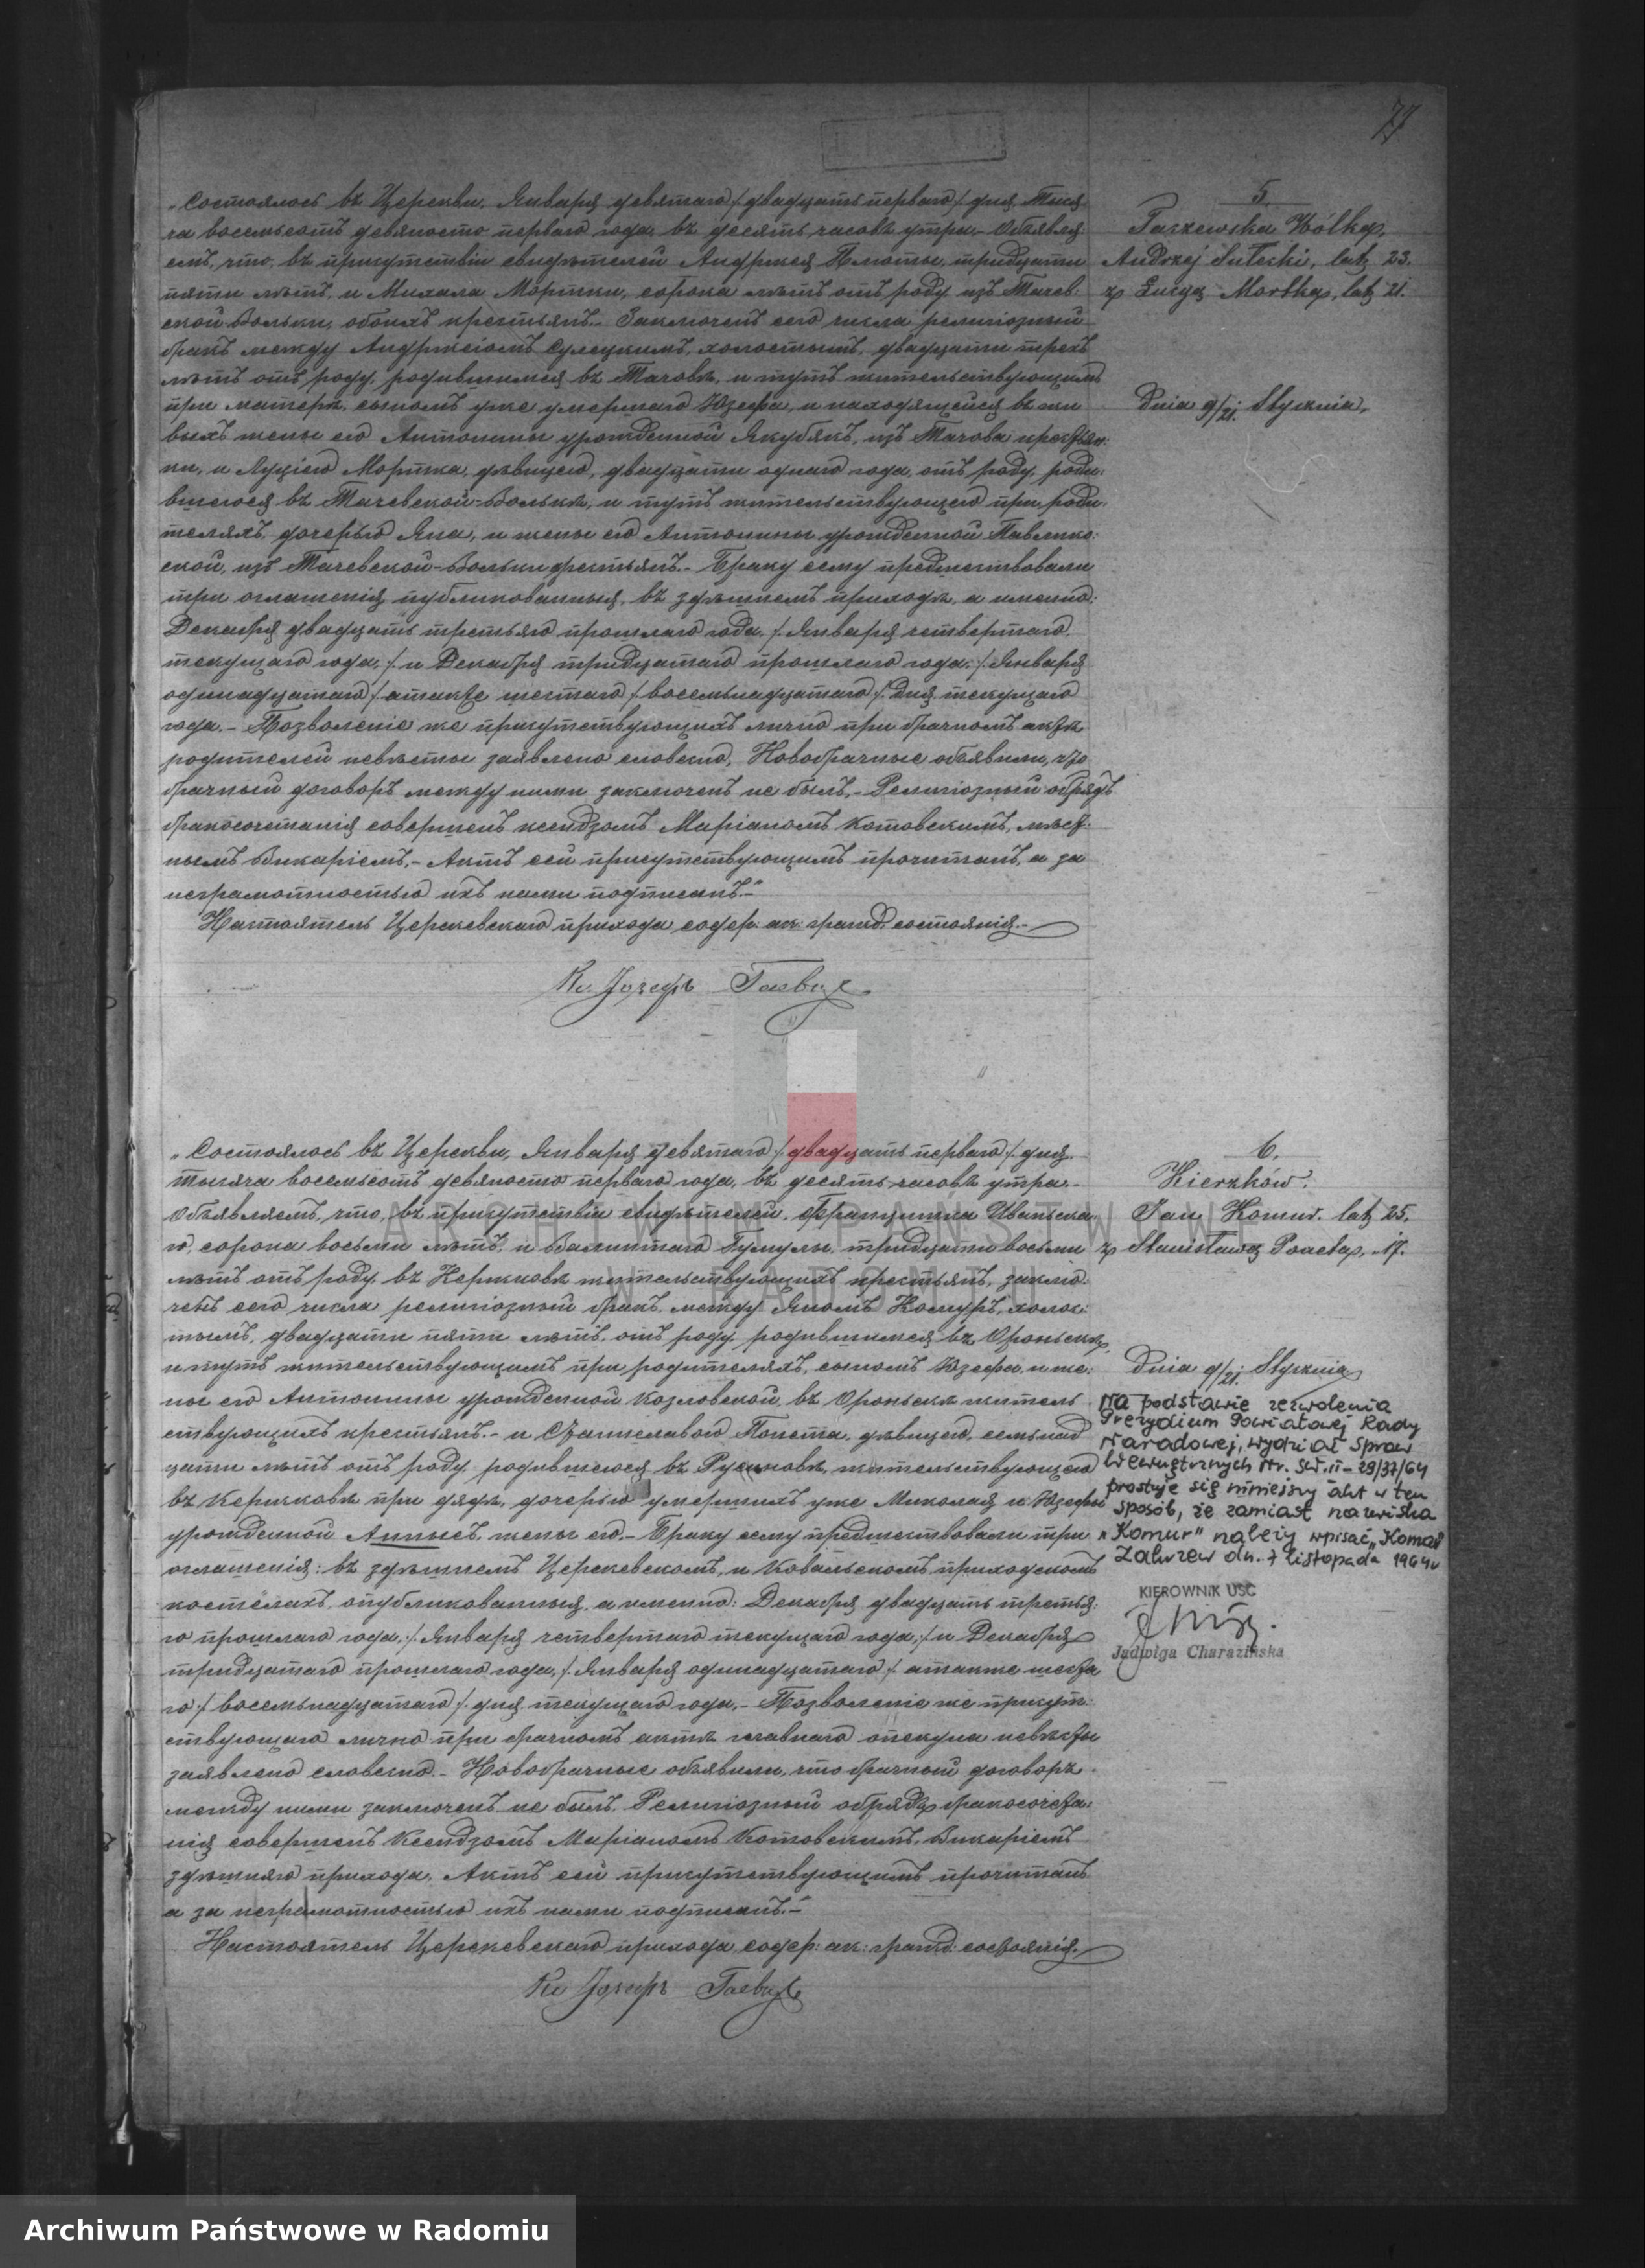 77
5.
Taszewska Wólka,
Andrzej Sułecki, lat 23.
z Łucyą Mortką, lat 21.
Dnia 9/21. Stycznia,
„Состоялось въ Церекви, Января девятаго /двадцать перваго/ дня Тыся
ча восемьсотъ девяносто перваго года, въ десять часовъ утра. Объявля
емъ, что, въ присутствіи свидѣтелей Андржея Плюты, тридцати
пяти лѣтъ, и Михала Мортки, сорока лѣтъ отъ роду изъ Тачев
ской Вольки, обоихъ крестьянъ. Заключенъ сего числа религіозный
бракъ между Андржеіомъ Сулецкимъ, холостымъ, двадцати трехъ
лѣтъ отъ роду, родившимся въ Тачовѣ, и тутъ жительствующимъ
при матери, сыномъ уже умершаго Юзефа, и находящейся въ жи
выхъ жены его Антонины урожденной Якубякъ, изъ Тачова крестьян
ки, и Луціею Мортка, дѣвицею, двадцати одного года, отъ роду, роди
вшеюся въ Тачевской-Волькѣ, и тутъ жительствующею при роди
теляхъ, дочерью Яна, и жены его Антонины урожденной Павлико
ской, изъ Тачевской-Вольки крестьянъ. Браку сему предшествовали
три оглашенія публикованныя, въ здѣшнемъ приходѣ, а именно:
Декабря двадцать третьяго прошлаго года, /Января четвертаго,
текущаго года,/ и Декабря тридцатаго прошлаго года: /Января
одинадцатаго/ атакже шестаго /восемьнадцатаго/ Дня текущаго
года. – Позволеніе же присутствующихъ лично при брачномъ актѣ
родителей невѣсты заявлено словесно, Новобрачные объявили, что
брачный договоръ между ними заключенъ не былъ. – Религіозный обрядъ
бракосочетанія совершенъ ксендзомъ Маріаномъ Котовскимъ, мѣст
нымъ Викаріемъ. – Актъ сей присутствующимъ прочитанъ, а за
неграмотностью ихъ нами подписанъ. –
Настоятель Церекевскаго прихода содер: ак: гражд. состоянія. –
Кс Јозефъ
6.
Kierzków.
Jan Komur. lat 25.
z Stanisławą Ponetą, 17.
Dnia 9/21. Stycznia
Na podstawie zezwolenia
Prezydium Powiatowej Rady
Narodowej, wydział Spraw
Wewnętrznych Nr. SW.II-29/37/64
prostuje się niniejszy akt w ten
sposób, że zamiast nazwiska
„Komur" należy wpisać „Komar
Zakrzew dn. 7 listopada 1964 r
KIEROWNIK USC
Jadwiga Charazińska
„Состоялось въ Церекви, Января девятаго /двадцать перваго/ дня
тысяча восемьсотъ девяносто перваго года, въ десять часовъ утра. –
Объявляемъ, что, въ присутствіи свидѣтелей, Францишка Иваньска
го, сорока восьми лѣтъ, и Валентаго Гумулы, тридцати восьми
лѣтъ отъ роду, въ Кержковѣ жительствующихъ крестьянъ, заклю
ченъ сего числа религіозный бракъ, между Яномъ Комуръ, холос
тымъ, двадцати пяти лѣтъ, отъ роду, родившимся въ Ороньскѣ,
и тутъ жительствующимъ при родителяхъ, сыномъ Юзефа, и же
ны его Антонины урожденной Козловской, въ Ороньскѣ житель
ствующихъ крестьянъ. – и Станиславою Понета, дѣвицею, семьнад
цати лѣтъ отъ роду родившеюся въ Русиновѣ, жительствующею
въ Кержковѣ при дядѣ, дочерью умершихъ уже Миколая и Юзефы
урожденной Аннысъ, жены его. – Браку сему предшествовали три
оглашенія: въ здѣшнемъ Церекевскомъ, и Ковальскомъ приходскомъ
костёлахъ, опубликованныя, а именно: Декабря двадцать третья
го прошлаго года, /Января четвертаго текущаго года,/ и Декабря
тридцатаго прошлаго года, /Января одинадцатаго/ атакже шеста
го /восемьнадцатаго/ дня текущаго года. – Позволеніе же присут
ствующаго лично при брачномъ актѣ главнаго опекуна невѣсты
заявлено словесно. – Новобрачные объявили, что брачный договоръ
между ними заключенъ не былъ. Религіозный обрядъ бракосочета
нія совершенъ Ксендзомъ Маріаномъ Котовскимъ, Викаріемъ
здѣшняго прихода. Актъ сей присутствующимъ прочитанъ
а за неграмотностью ихъ нами подписанъ. –
Настоятель Церекевскаго прихода, содер: ак: гражд: состоянія.
Кс Јозефъ
ARCHIWUM PAŃSTWOWE
W RADOMIU
Archiwum Państwowe w Radomiu